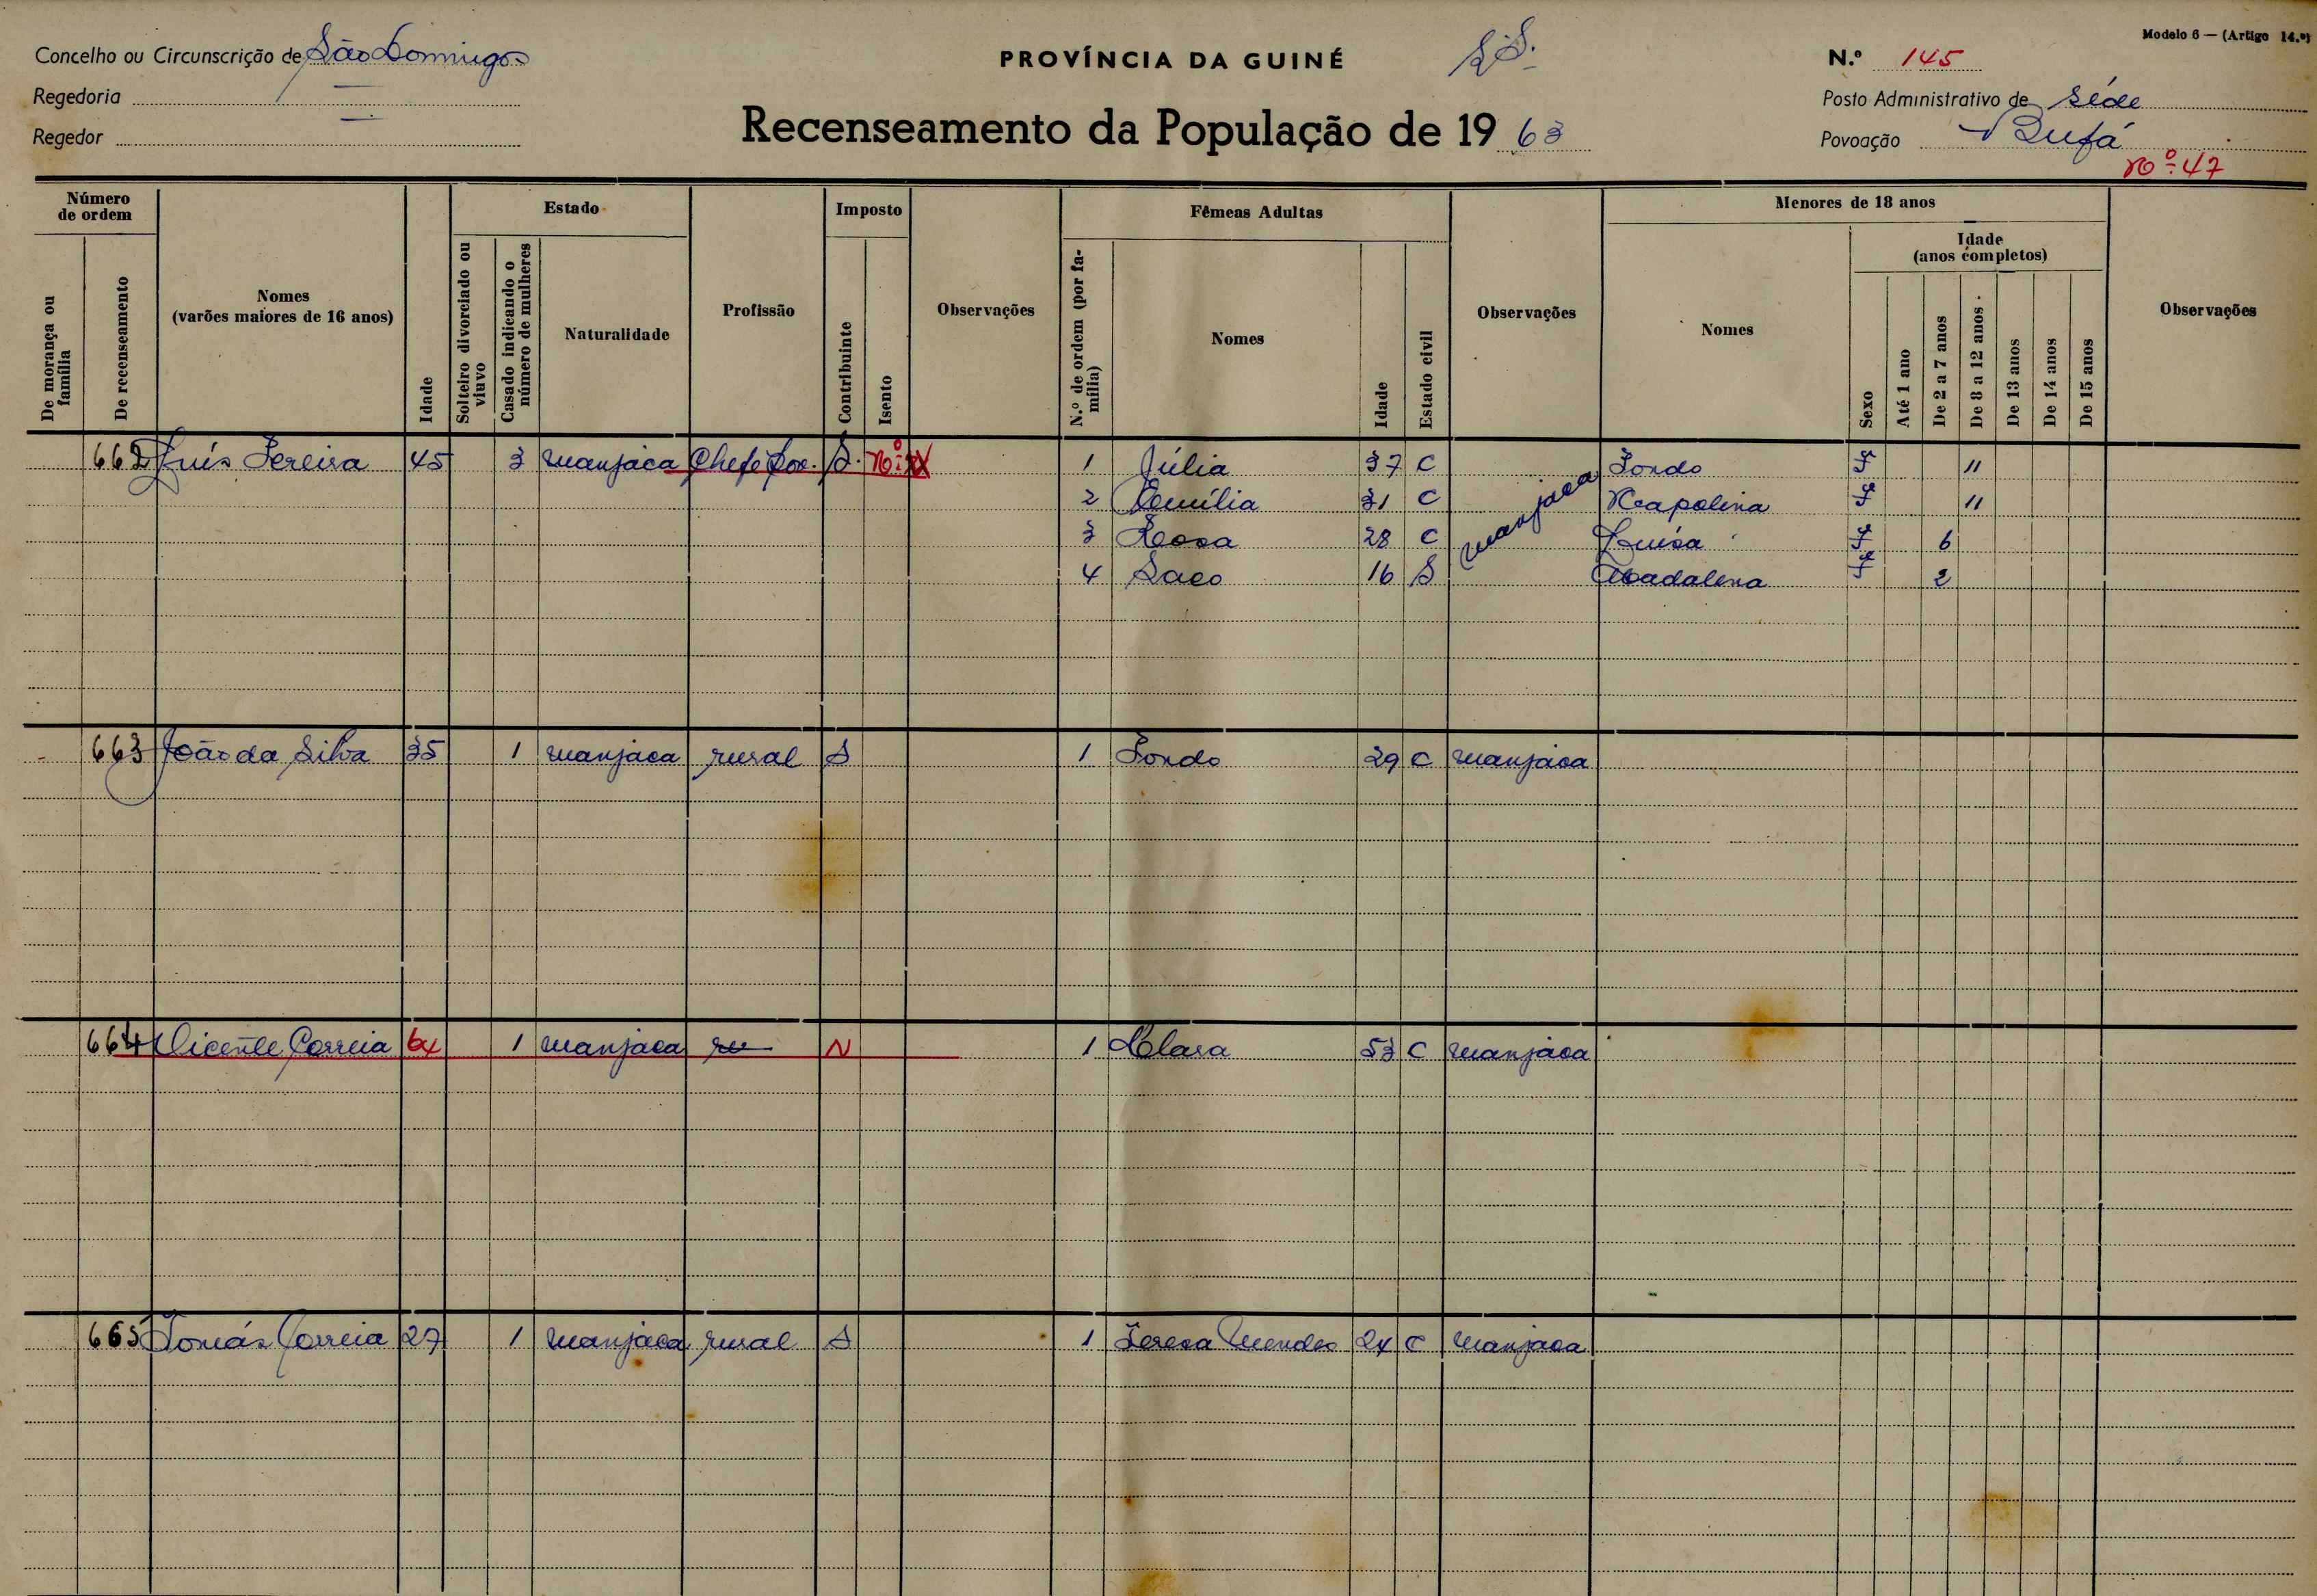 Modelo 6 — (Artigo 14.º)
Concelho ou Circunscrição de São Domingos
PROVÍNCIA DA GUINÉ
N.º 145
Regedoria —
Posto Administrativo de Séde
Regedor —
Recenseamento da População de 19 63
Povoação Bufá
Nº 47
Número de ordem
De morança ou família
De recenseamento
Nomes (varões maiores de 16 anos)
Idade
Estado
Solteiro divorciado ou viuvo
Casado indicando o número de mulheres
Naturalidade
Profissão
Imposto
Contribuinte
Isento
Observações
Fêmeas Adultas
N.º de ordem (por família)
Nomes
Idade
Estado civil
Observações
Menores de 18 anos
Nomes
Sexo
Idade (anos completos)
Até 1 ano
De 2 a 7 anos
De 8 a 12 anos
De 13 anos
De 14 anos
De 15 anos
Observações
662 Luís Pereira 45 3 manjaca Chefe Pov. S. 1 Júlia 37 C manjaca Fondo F 11
2 Emília 31 C Napolina F 11
3 Rosa 28 C Luísa F 6
4 Saco 16 S Madalena F 2
663 João da Silva 35 1 manjaca rural S 1 Fondo 29 C manjaca
664 Vicente Correia 64 1 manjaca ru N 1 Clara 53 C manjaca
665 Tomás Correia 27 1 manjaca rural S 1 Teresa Mendes 24 C manjaca